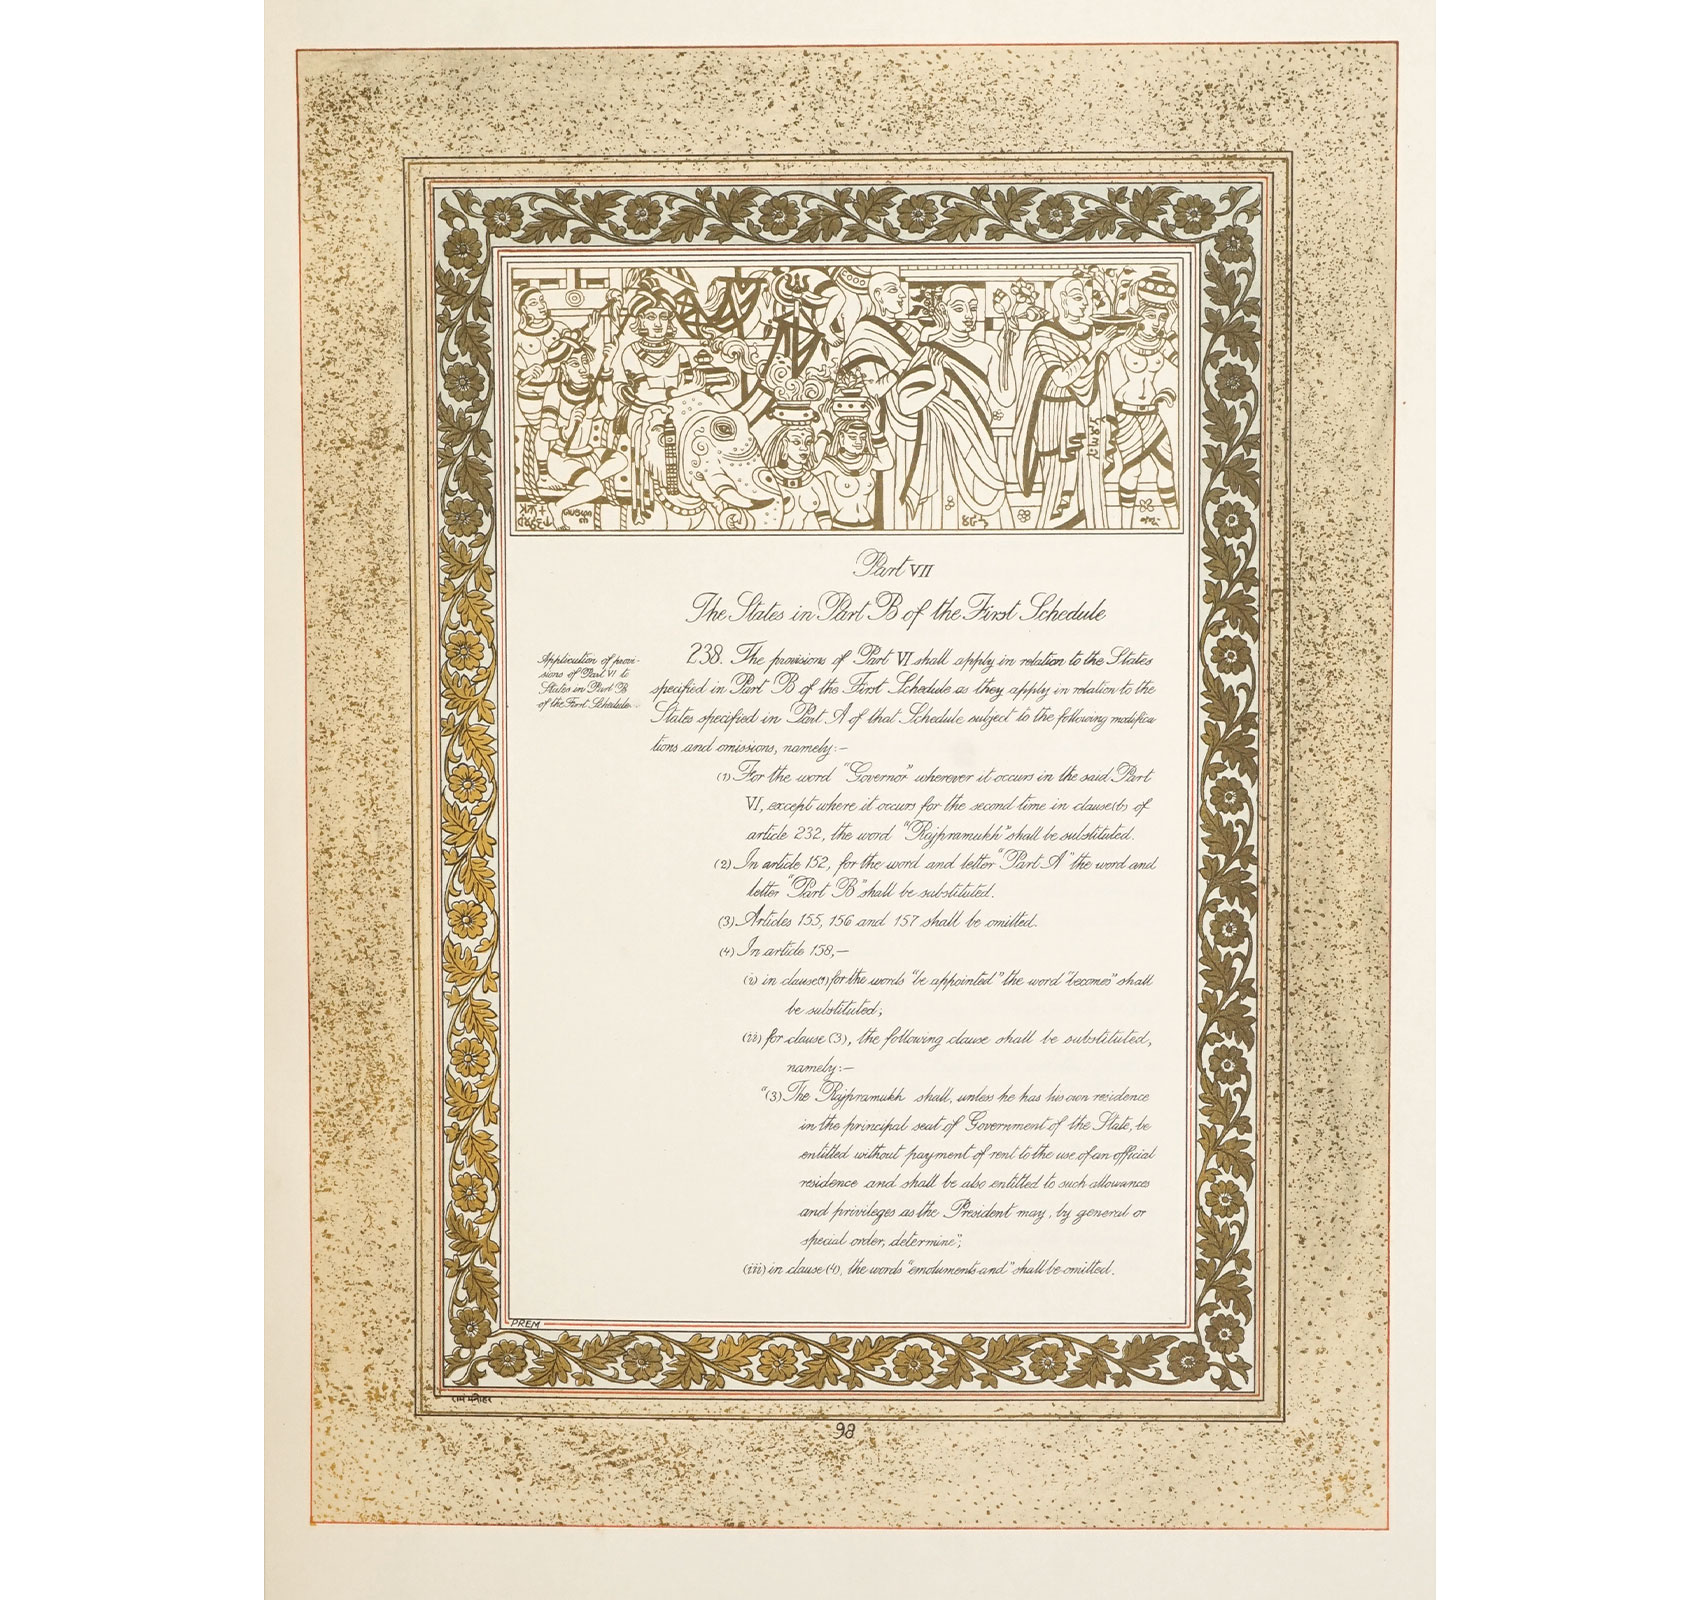 Part VII
The States in Part B of the First Schedule
Application of provi-
sions of Part VI to
States in Part B
of the First Schedule.
238. The provisions of Part VI shall apply in relation to the States
specified in Part B of the First Schedule as they apply in relation to the
States specified in Part A of that Schedule subject to the following modifica
tions and omissions, namely:—
(1) For the word "Governor" wherever it occurs in the said Part
VI, except where it occurs for the second time in clause (b) of
article 232, the word "Rajpramukh" shall be substituted.
(2) In article 152, for the word and letter "Part A" the word and
letter "Part B" shall be substituted.
(3) Articles 155, 156 and 157 shall be omitted.
(4) In article 158,—
(i) in clause (1) for the words "be appointed" the word "becomes" shall
be substituted;
(ii) for clause (3), the following clause shall be substituted,
namely:—
"(3) The Rajpramukh shall, unless he has his own residence
in the principal seat of Government of the State, be
entitled without payment of rent to the use of an official
residence and shall be also entitled to such allowances
and privileges as the President may, by general or
special order, determine";
(iii) in clause (4), the words "emoluments and" shall be omitted.
PREM
राम मनोहर
98